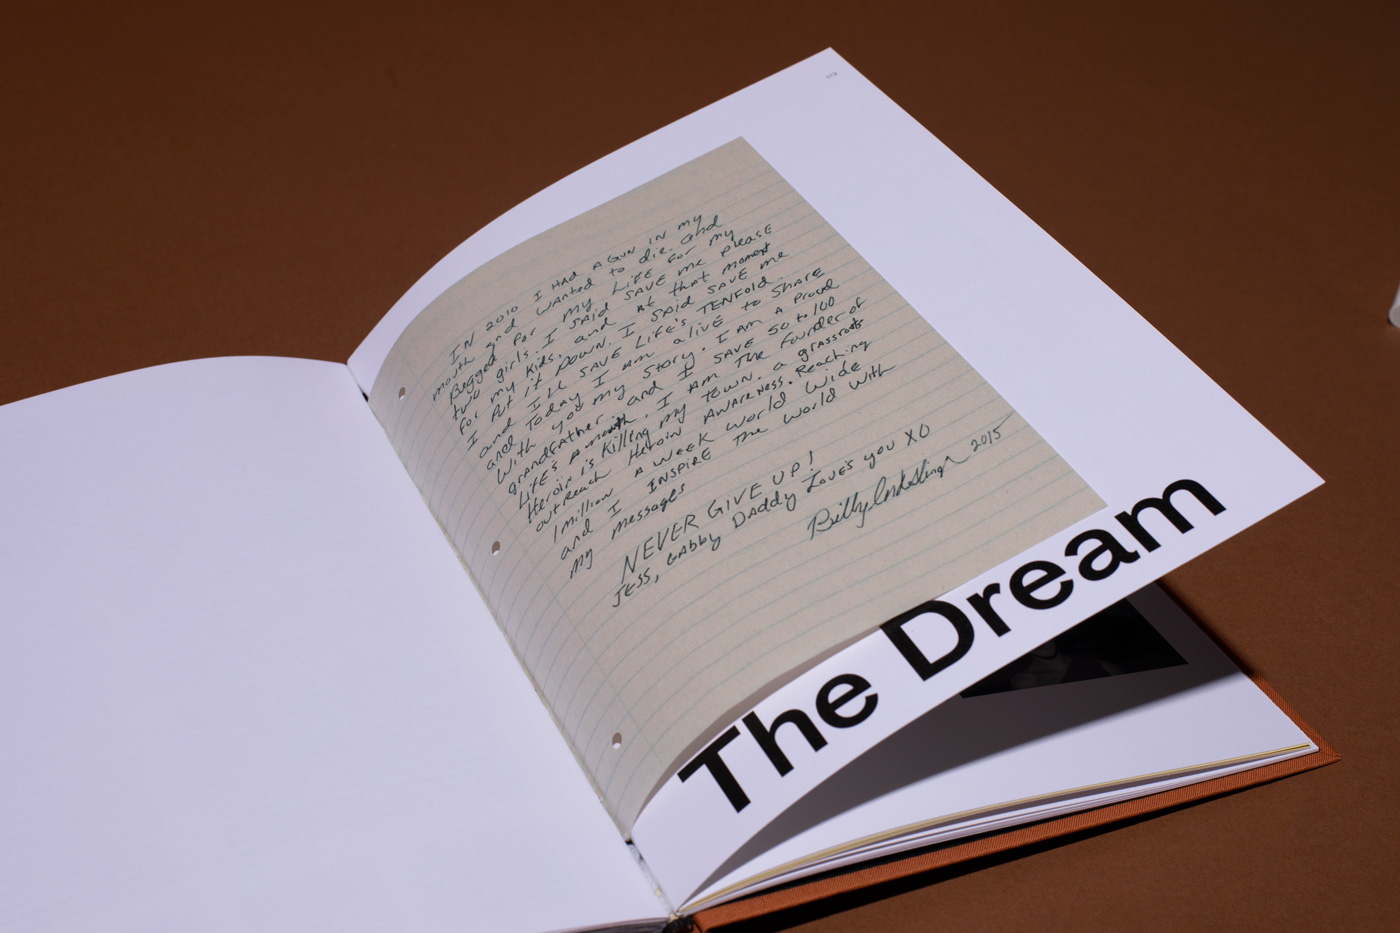 113
IN 2010 I HAD A GUN IN my
mouth and wanted to die. and
Begged For my LiFE For my
two girls. I SAID SAVE me PleasE
For my Kids. and At that moment
I Put it DOWN. I SAID SAVE me
and I'LL SAVE LiFE'S TENFold.
and TodAy I Am aliVE to SHARE
With you my Story. I AM A Proud
grandfather and I SAVE 50 to 100
LiFE'S A month. I AM The Founder of
Heroin is Killing my TOWN. a grassroots
outreach Heroin AWARENESS. Reaching
1 million A WEEK World WidE
and I INSPIRE The World With
my messages
NEVER GIVE UP!
JESS, GAbby DADDY LovES you XO
Billy 2015
The Dream